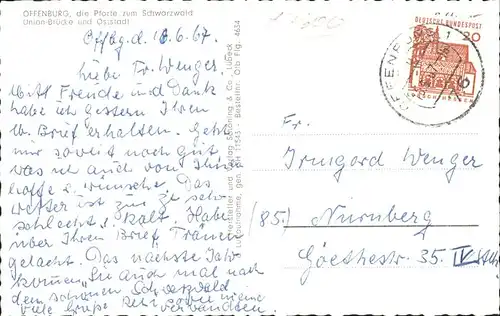 OFFENBURG, die Pforte zum Schwarzwald
Union-Brücke und Oststadt
Offbg. d. 16.6.67
Liebe Fr. Wenger,
Mit Freude und Dank
habe ich gestern Ihren
lb. Brief erhalten. Geht
mir soweit noch gut
was ich auch von Ihnen
hoffe u. wünsche. Das
Wetter ist zur Zt sehr
schlecht u. kalt. Habe
über Ihren Brief Tränen
gelacht. Das nächste Jahr
kommen Sie auch mal nach
dem schönen Schwarzwald
viele Grüße
Hersteller und Verlag Schöning & Co., Lübeck
Luftaufnahme, gen. Bestellnr. Ofb Flg. 4634
DEUTSCHE BUNDESPOST
20
OFFENBURG
LORSCH/HESSEN
Fr.
Irmgard Wenger
(85) Nürnberg
Goethestr. 35. IV